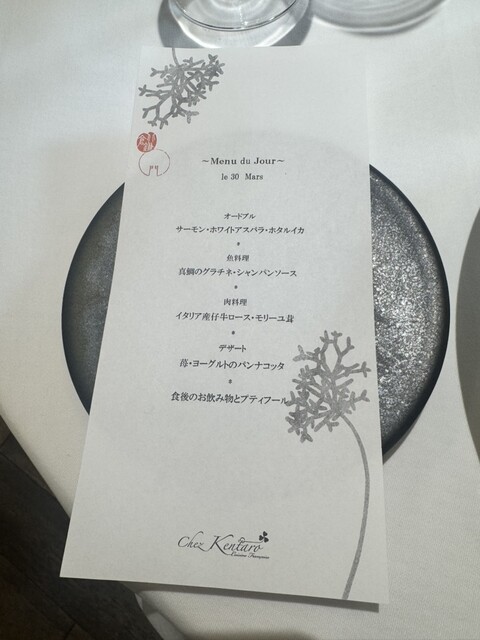 ~Menu du Jour~
le 30 Mars
オードブル
サーモン・ホワイトアスパラ・ホタルイカ
*
魚料理
真鯛のグラチネ・シャンパンソース
*
肉料理
イタリア産仔牛ロース・モリーユ茸
*
デザート
苺・ヨーグルトのパンナコッタ
*
食後のお飲み物とプティフール
Chez Kentaro
Cuisine Française